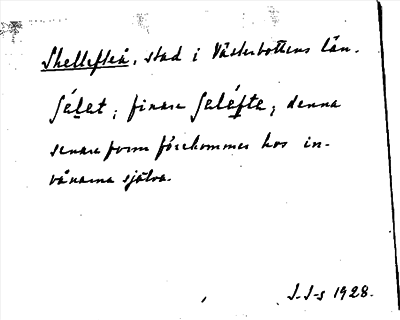 Skellefteå, stad i Västerbottens län.
ʃéḷet; finare ʃeléfte; denna
senare form förekommer hos in-
vånarna själva.
J. J-s 1928.